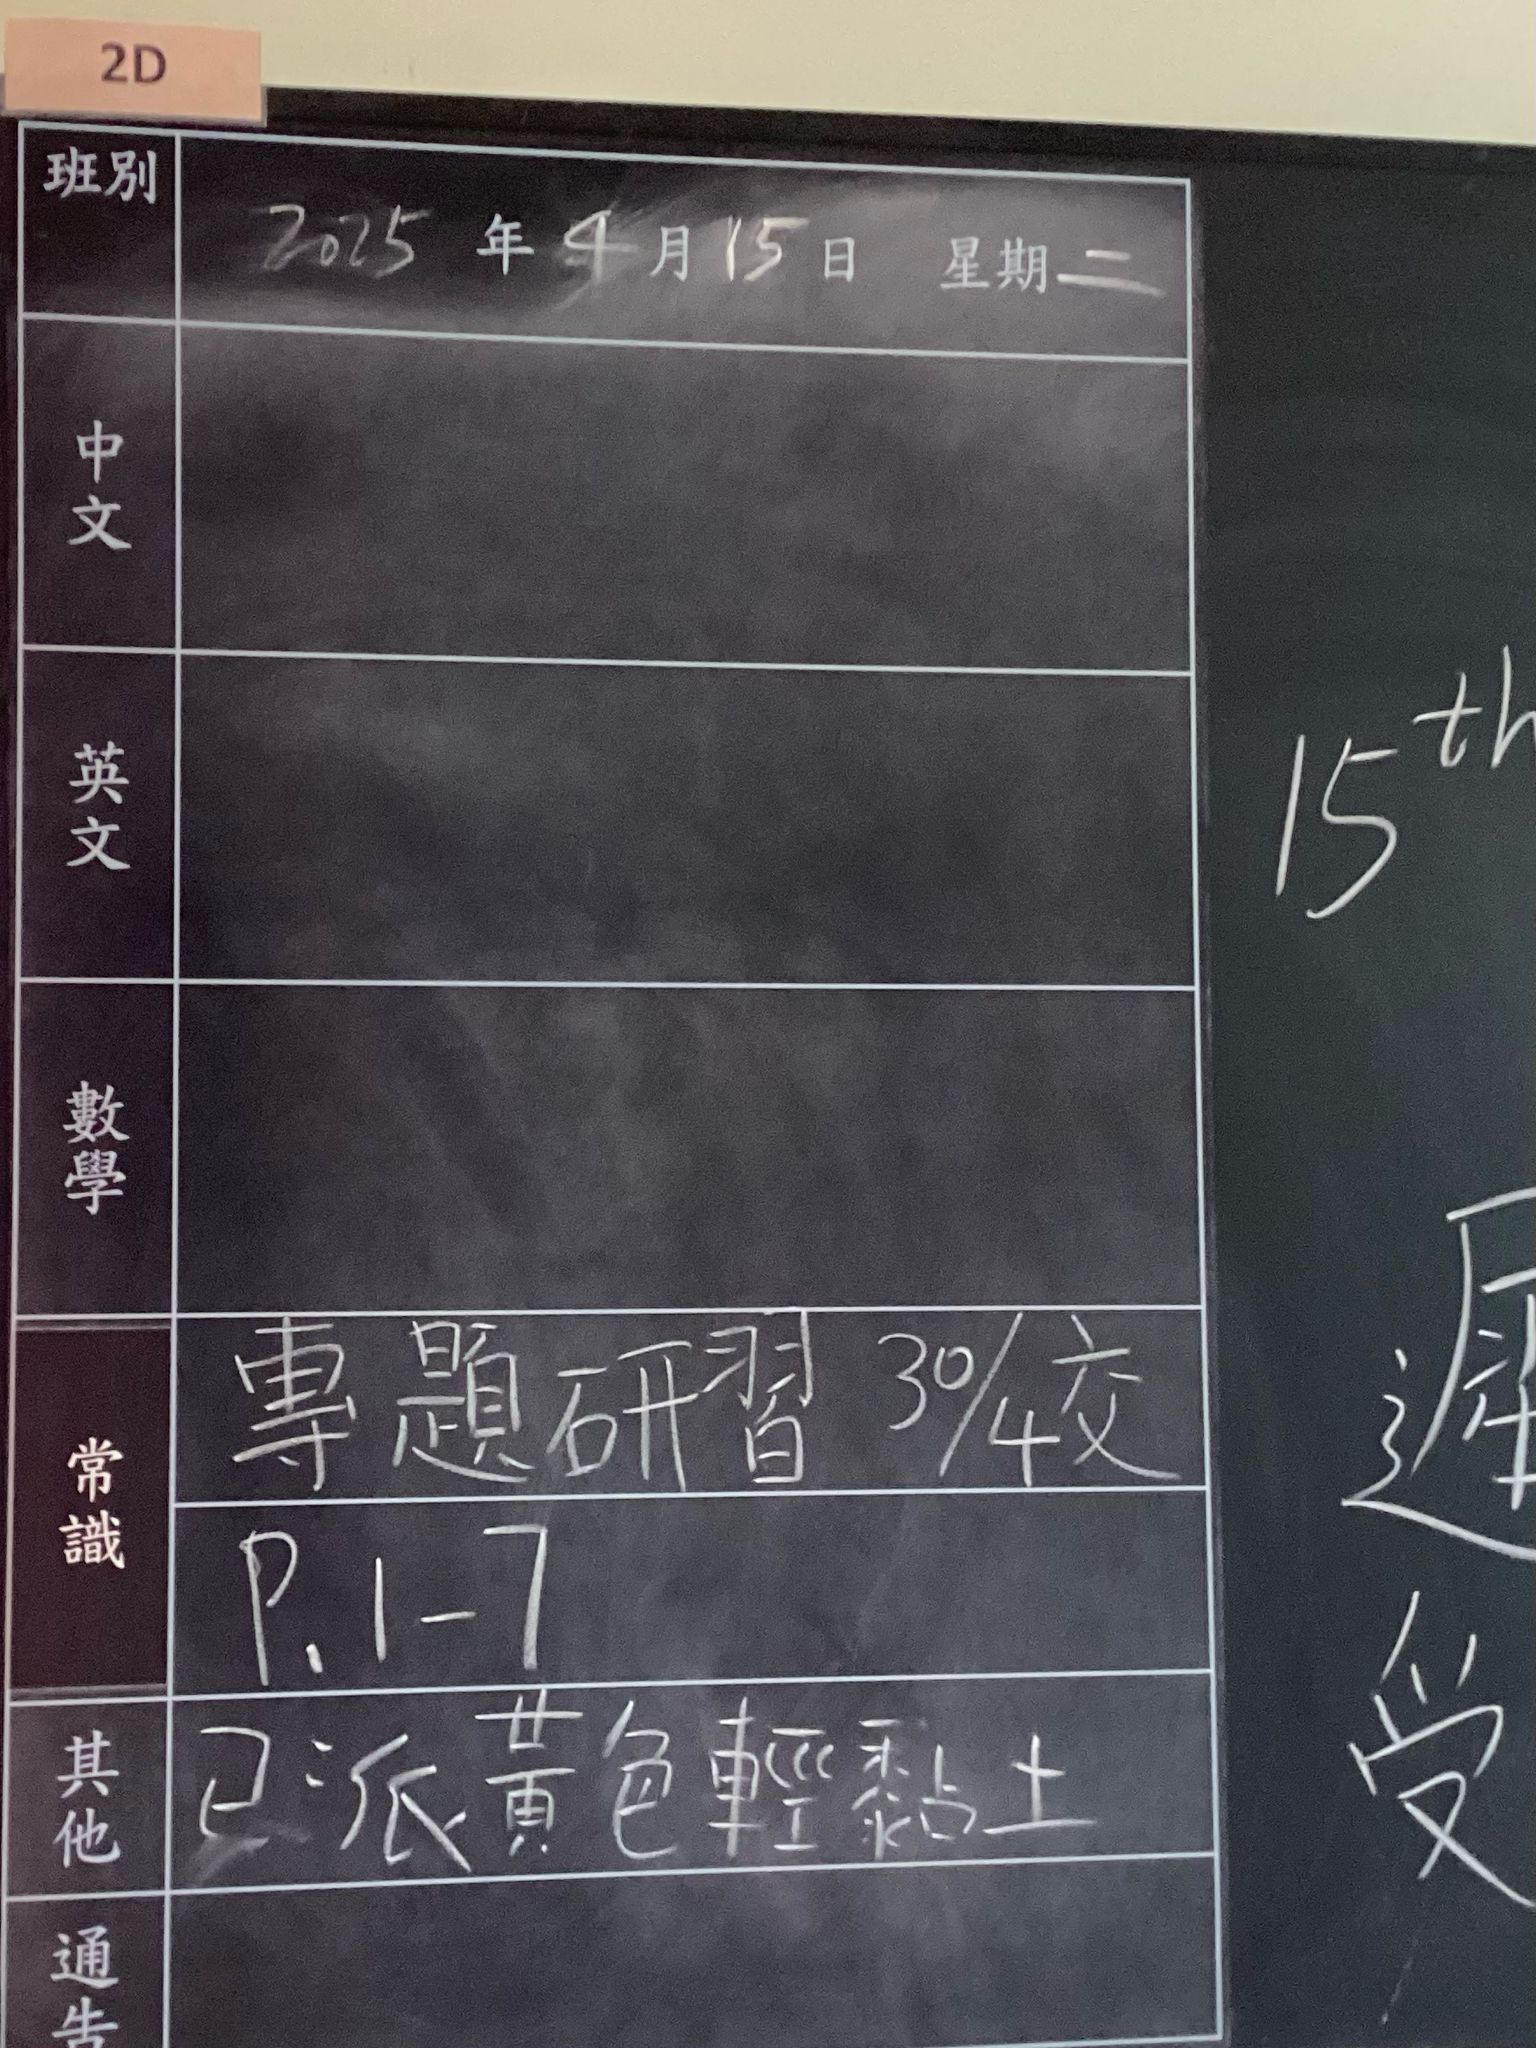 2D
班別
2025 年 4 月 15 日 星期二
中文
英文
數學
常識
專題研習 30/4交
P.1-7
其他
已派黃色輕黏土
通告
15th
遲
受